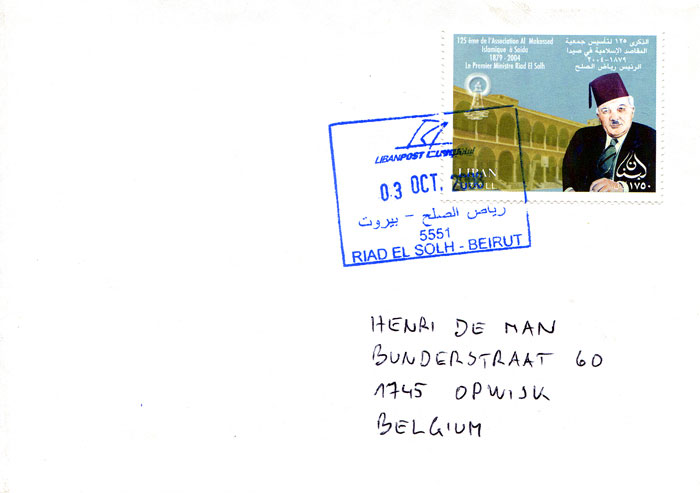 125 ème de l'Association Al Makassed
Islamique à Saida
1879 - 2004
Le Premier Ministre Riad El Solh
الذكرى ١٢٥ لتأسيس جمعية
المقاصد الإسلامية في صيدا
١٨٧٩-٢٠٠٤
الرئيس رياض الصلح
LIBAN
لبنان
١٧٥٠
LIBANPOST
03 OCT. 2008
رياض الصلح - بيروت
5551
RIAD EL SOLH - BEIRUT
HENRI DE MAN
BUNDERSTRAAT 60
1745 OPWIJK
BELGIUM